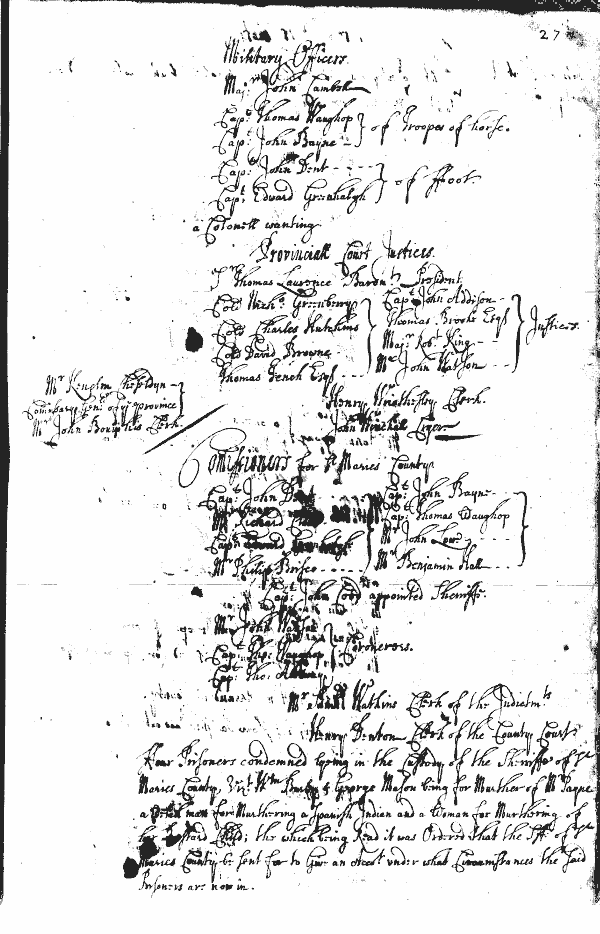 27
Military Officers
Majr John Campbell
Capt Thomas Waughop
Capt John Bayne
of Troopes of horse.
Capt John Dent
Capt Edward Greenhalgh
of ffoot.
a Colonell wanting
Provinciall Court Justices.
Sr Thomas Laurence Baront President
Coll Nicho: Greenberry
Coll Charles Hutchins
Coll David Browne
Thomas Tench Esqr
Capt John Addison
Thomas Brooke Esqr
Majr Robt King
Mr John Watson
Justices.
Mr Kenelm Cheseldyn
Comissary Genl of ye province
Mr John Clerk
Henry Wriothesley Clerk.
John Cryer
Comissioners for St Maries County
Capt John Dent
Mr Richard
Capt Edward Greenhalgh
Mr Philip Briscoe
Capt John Bayne
Capt Thomas Waughop
Mr John Lowe
Mr Benjamin Hall
Capt John Coode appointed Sheriffe
Mr John Watson
Capt Tho: Waughop
Capt Tho:
Coroners.
Mr Watkins Clerk of the Indictmts
Henry Denton Clerk of the County Court
Four Prisoners condemned lying in the Custody of the Sheriffe of St
Maries County, Vizt Wm Burley & George Mason being for Murther of Mr Payne
a man for Murthering a Spanish Indian and a Woman for Murthering of
her Bastard Child; the which being Read it was Ordered that the Sff of St
Maries County be sent for to Give an Acct under what Circumstances the said
Prisoners are now in.